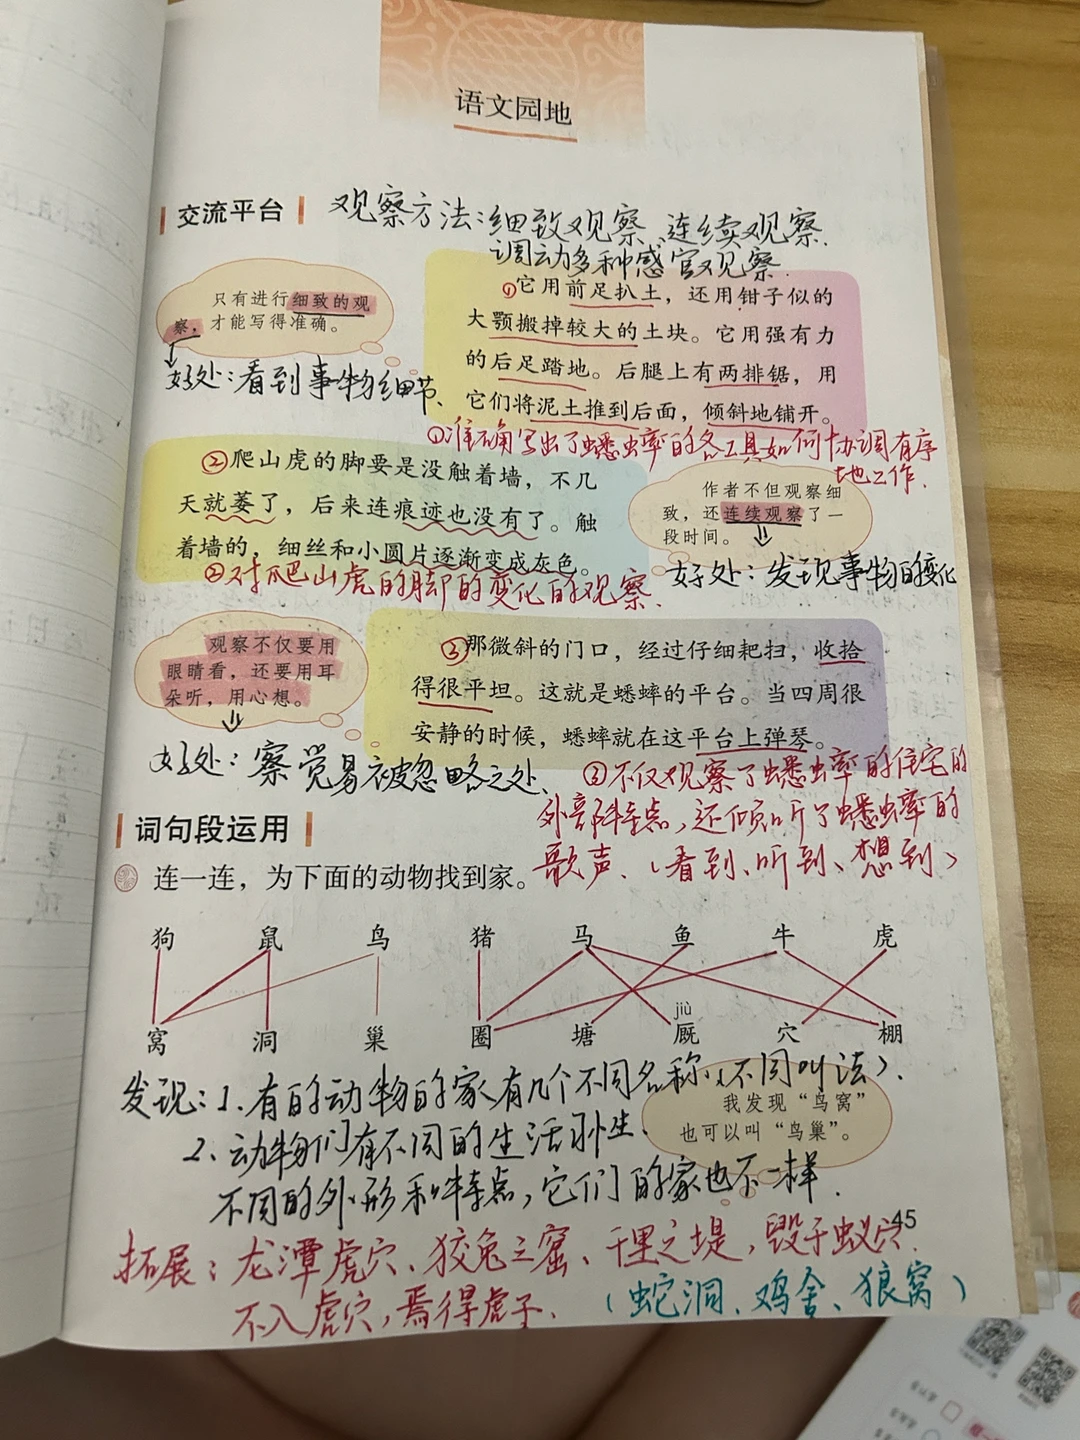 语文园地
交流平台
观察方法：细致观察、连续观察、
调动多种感官观察.
只有进行细致的观
察，才能写得准确。
好处：看到事物细节、
①它用前足扒土，还用钳子似的
大颚搬掉较大的土块。它用强有力
的后足踏地。后腿上有两排锯，用
它们将泥土推到后面，倾斜地铺开。
①准确写出了蟋蟀的各工具如何协调有序
地工作.
②爬山虎的脚要是没触着墙，不几
天就萎了，后来连痕迹也没有了。触
着墙的，细丝和小圆片逐渐变成灰色。
②对爬山虎的脚的变化的观察.
作者不但观察细
致，还连续观察了一
段时间。
好处：发现事物的变化
观察不仅要用
眼睛看，还要用耳
朵听，用心想。
好处：察觉易被忽略之处、
③那微斜的门口，经过仔细耙扫，收拾
得很平坦。这就是蟋蟀的平台。当四周很
安静的时候，蟋蟀就在这平台上弹琴。
③不仅观察了蟋蟀的住宅的
外部特点，还倾听了蟋蟀的
歌声、（看到、听到、想到）
词句段运用
连一连，为下面的动物找到家。
狗 鼠 鸟 猪 马 鱼 牛 虎
jiù
窝 洞 巢 圈 塘 厩 穴 棚
发现：1、有的动物的家有几个不同名称（不同叫法）.
我发现“鸟窝”
也可以叫“鸟巢”。
2、动物们有不同的生活习性、
不同的外形和特点，它们的家也不一样.
45
拓展：龙潭虎穴、狡兔三窟、千里之堤，毁于蚁穴.
不入虎穴，焉得虎子.（蛇洞、鸡舍、狼窝）